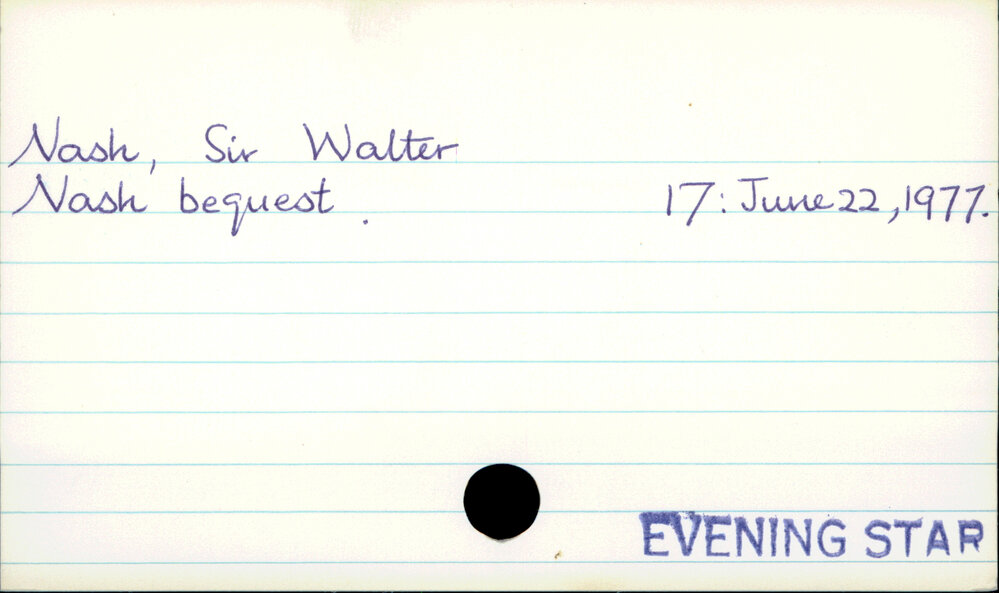 Nash, Sir Walter
Nash bequest. 17: June 22, 1977.
EVENING STAR